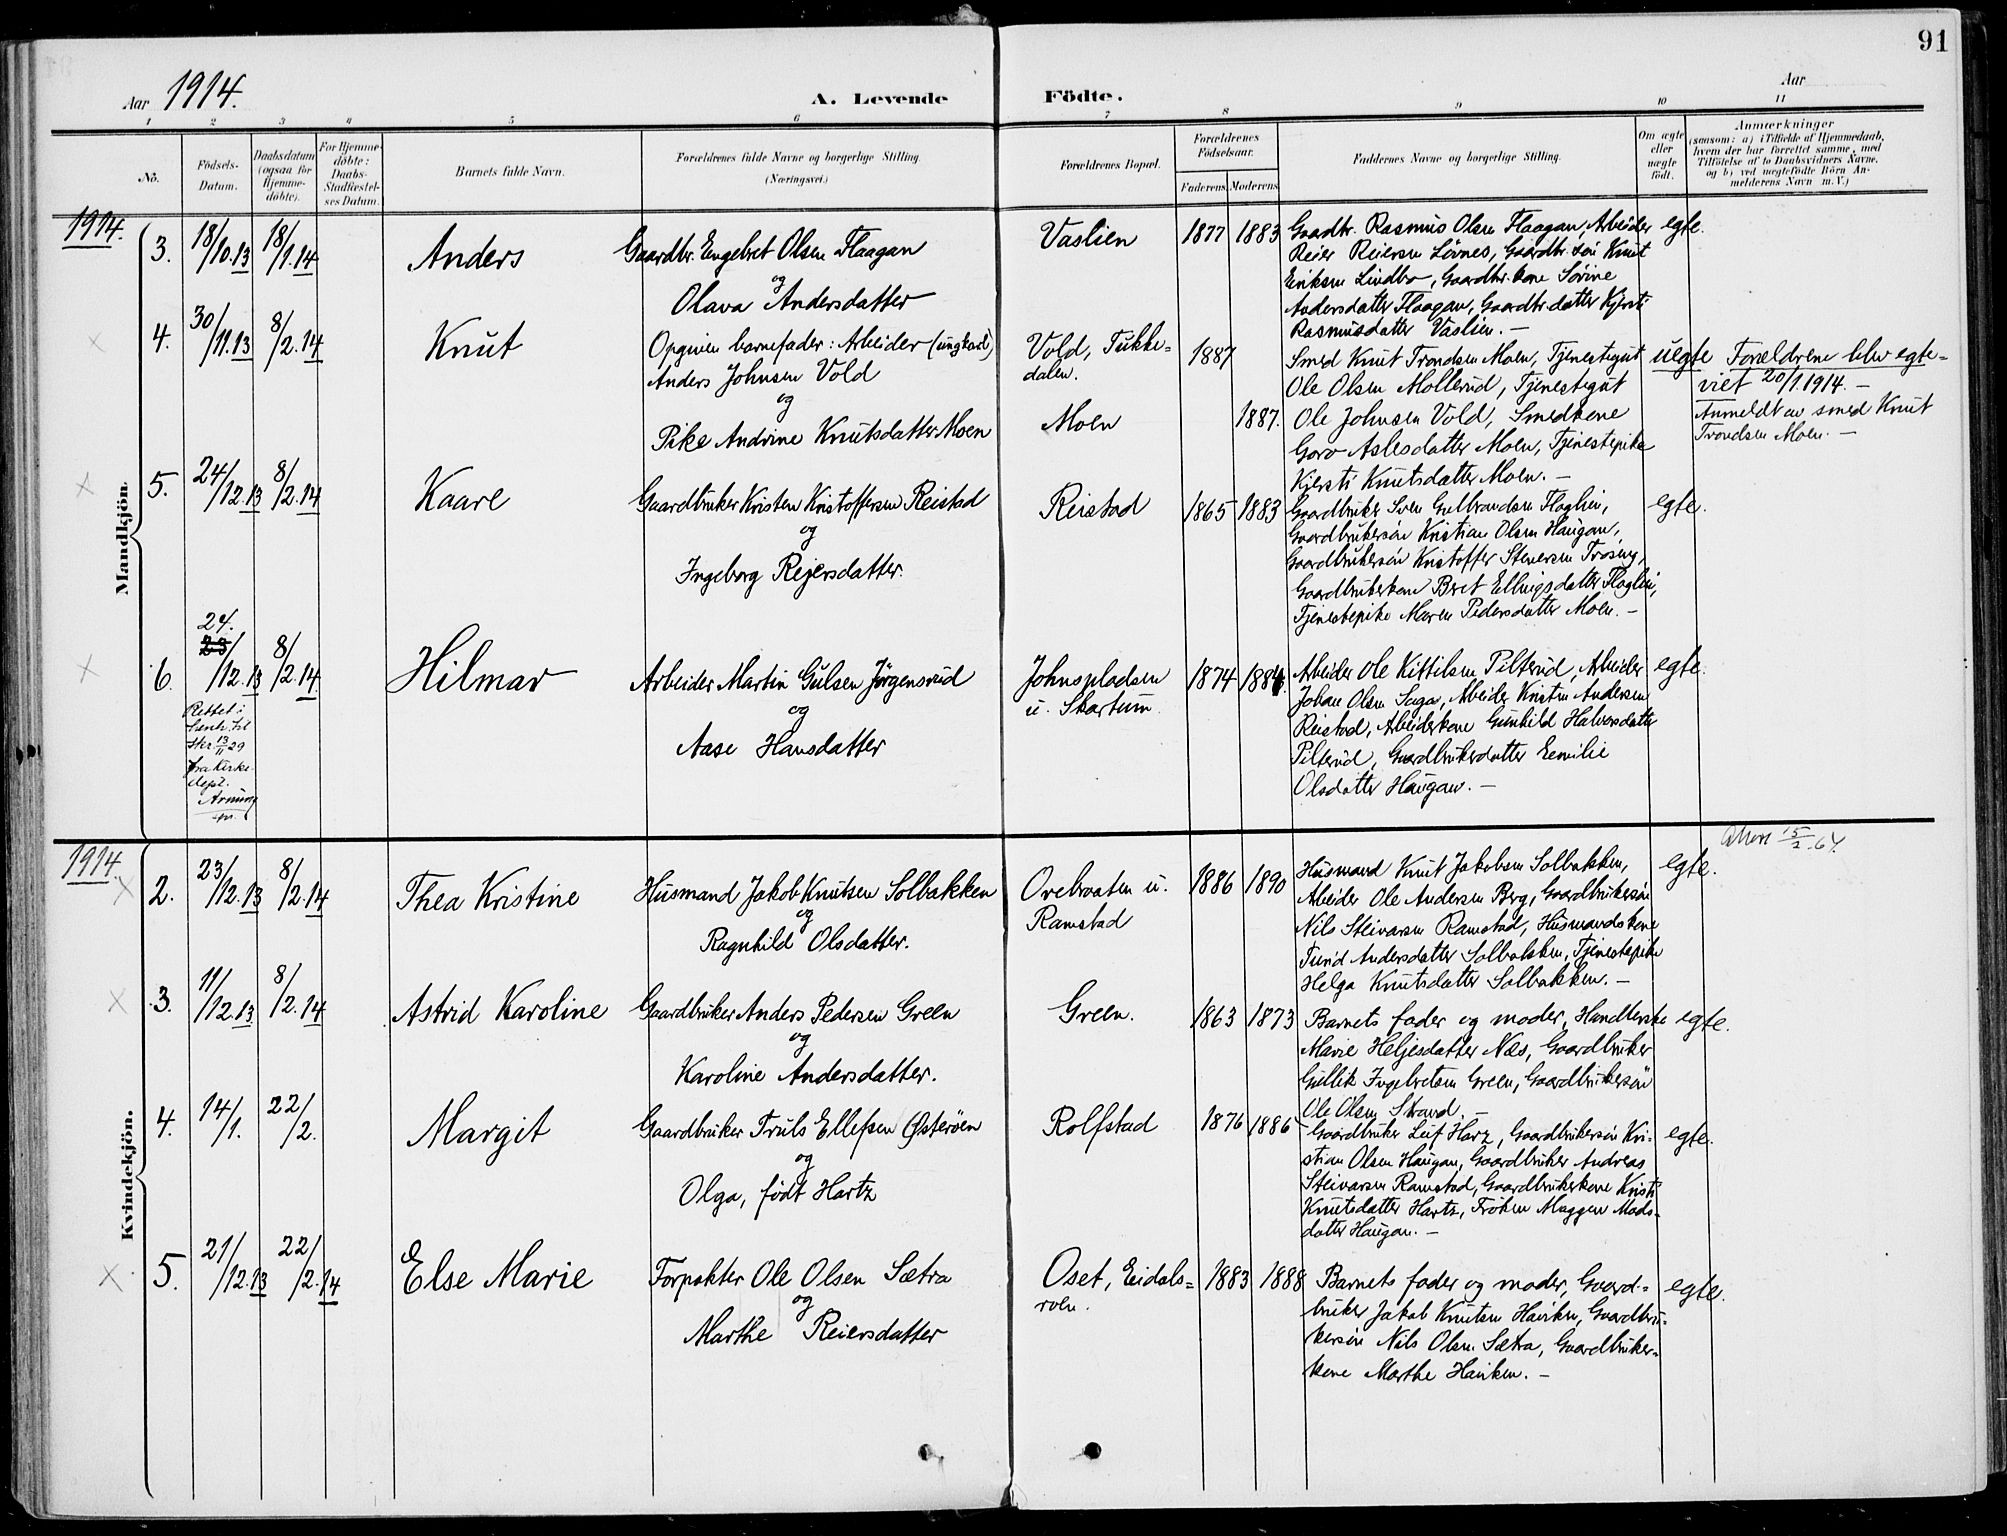 91
Aar 1914.
A. Levende Födte.
Aar
1 2 3 4 5 6 7 8 9 10 11
No.
Födsels-Datum.
Daabsdatum (ogsaa for Hjemme-döbte).
For Hjemme-döbte: Daabs-Stadfæstel-ses Datum.
Barnets fulde Navn.
Forældrenes fulde Navne og borgerlige Stilling. (Næringsvei.)
Forældrenes Bopæl.
Forældrenes Födselsaar.
Faderens. Moderens.
Faddernes Navne og borgerlige Stilling.
Om ægte eller uægte födt.
Anmærkninger
(saasom: a) i Tilfælde af Hjemmedaab,
hvem der har forrettet samme, med
Tilföielse af to Daabsvidners Navne,
og b) ved uægtefödte Börn An-
melderens Navn m. V.)
1914.
Mandkjön.
3. 18/10.13 18/1.14 Anders
Gaardbr. Engebret Olsen Flaagan
og
Olava Andersdatter
Vaslien 1877 1883
Gaardbr. Rasmus Olsen Flaagan, Arbeider
Reier Reiersen Lövnes, Gaardbr. sön Knut
Eriksen Lindbo, Gaardbr. kone Sörine
Andersdatter Flaagan, Gaardbr. datter Kjersti
Rasmusdatter Vaslien. —
egte.
4. 30/11.13 8/2.14 Knut
Opgiven barnefader: Arbeider (ungkarl)
Anders Johnsen Vold
og
Pike Andrine Knutsdatter Moen
Vold, Tukke=
dalen.
Moen
1887
1887.
Smed Knut Trondsen Moen, Tjenestegut
Ole Olsen Mollerud, Tjenestegut
Ole Johnsen Vold, Smedkone
Goro Aslesdatter Moen, Tjenestepike
Kjersti Knutsdatter Moen. —
uegte
Forældrene blev egte=
viet 20/1 1914. —
Anmeldt av smed Knut
Trondsen Moen. —
5. 24/12.13 8/2.14 Kaare
Gaardbruker Kristen Kristoffersen Reistad
og
Ingeborg Reiersdatter.
Reistad 1865 1883
Gaardbruker Sven Gulbrandsen Flaglien,
Gaardbrukersön Kristian Olsen Haugan,
Gaardbrukersön Kristoffer Stenersen
Gaardbrukerkone Beret Ellingsdatter Flaglien,
Tjenestepike Maren Pedersdatter Moen. —
egte.
6. 24. 23/12.13 8/2.14 Hilmar
Rettet i
13/11 29
fra Kirke-
dept.
Arbeider Martin Gulsen Jörgensrud
og
Aase Hansdatter
Johnspladsen
u. Skartum.
1874 1884.
Arbeider Ole Kittilsen Pilterud, Arbeider
Johan Olsen Saga, Arbeider Kristen Andersen
Reistad, Arbeiderkone Gunhild Halvorsdatter
Pilterud, Gaardbrukerdatter Eemilie
Olsdatter Haugan. —
egte.
1914.
Kvindekjön.
2. 23/12.13 8/2.14 Thea Kristine
Husmand Jakob Knutsen Solbakken
og
Ragnhild Olsdatter.
Ovebraaten u.
Ramstad
1886 1890
Husmand Knut Jakobsen Solbakken,
Arbeider Ole Andersen Berg, Gaardbrukersön
Nils Steinarsen Ramstad, Husmandskone
Turid Andersdatter Solbakken, Tjenestepike
Helga Knutsdatter Solbakken. —
egte.
15/2.64.
3. 11/12.13 8/2.14 Astrid Karoline
Gaardbruker Anders Pedersen Green
og
Karoline Andersdatter.
Green. 1863 1873
Barnets fader og moder, Handlerske
Marie Heljesdatter Næs, Gaardbruker
Gullik Ingebretsen Green, Gaardbrukersön
Ole Olsen Strand. —
egte.
4. 14/1. 22/2. Margit
Gaardbruker Truls Ellefsen Österöen
og
Olga, födt Hartz
Rolfstad 1876 1886
Gaardbruker Leif Harz, Gaardbrukersön Kri-
stian Olsen Haugan, Gaardbruker Andreas
Steinarsen Ramstad, Gaardbrukerkone Kristi
Knutsdatter Hartz, Fröken Maggen Mads-
datter Haugan. —
egte.
5. 21/12.13 22/2.14 Else Marie
Forpakter Ole Olsen Sætra
og
Marthe Reiersdatter
Oset, Eidals=
roen.
1883 1888
Barnets fader og moder, Gaard=
bruker Jakob Knutsen Haviken, Gaardbru-
kersön Nils Olsen Sætra, Gaardbruker=
kone Marthe Haviken. —
egte.